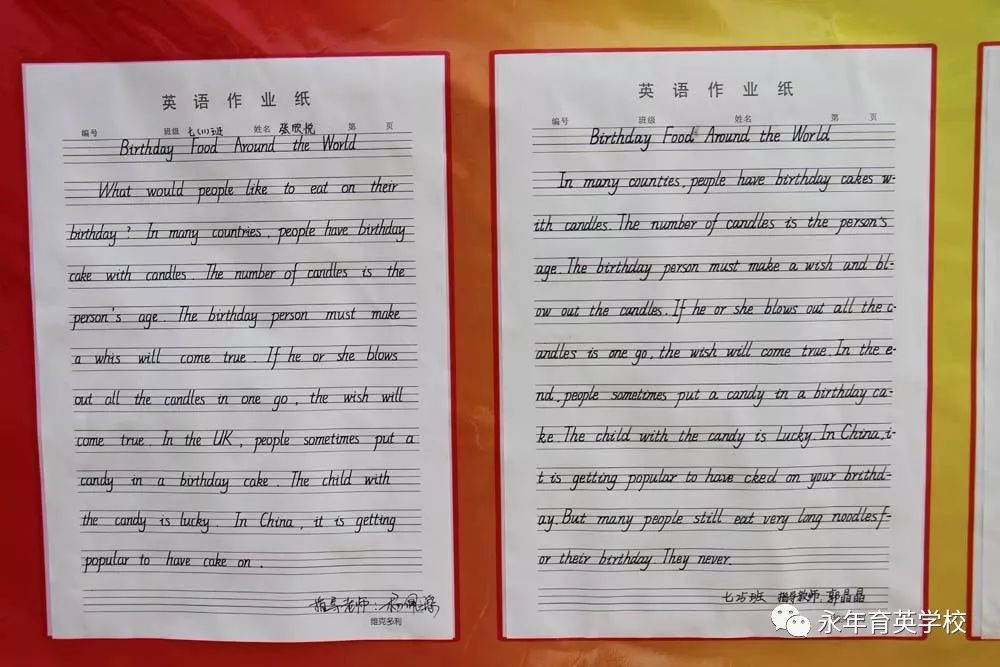 英语作业纸
编号 班级 七(1)班 姓名 张欣悦 第 页
Birthday Food Around the World
What would people like to eat on their
birthday? In many countries, people have birthday
cake with candles. The number of candles is the
person's age. The birthday person must make
a whis will come true. If he or she blows
out all the candles in one go, the wish will
come true. In the UK, people sometimes put a
candy in a birthday cake. The child with
the candy is lucky. In China, it is getting
popular to have cake on.
指导老师:
维克多利
英语作业纸
编号 班级 姓名 第 页
Birthday Food Around the World
In many counties, people have birthday cakes w-
ith candles. The number of candles is the person's
age. The birthday person must make a wish and bl-
ow out the candles. If he or she blows out all the c-
andles is one go, the wish will come true. In the e-
nd, people sometimes put a candy in a birthday ca-
ke. The child with the candy is Lucky. In China, i-
t is getting popular to have cked on your brithd-
ay. But many people still eat very long noodles f-
or their birthday. They never.
七5班 指导教师:郭晶晶
永年育英学校